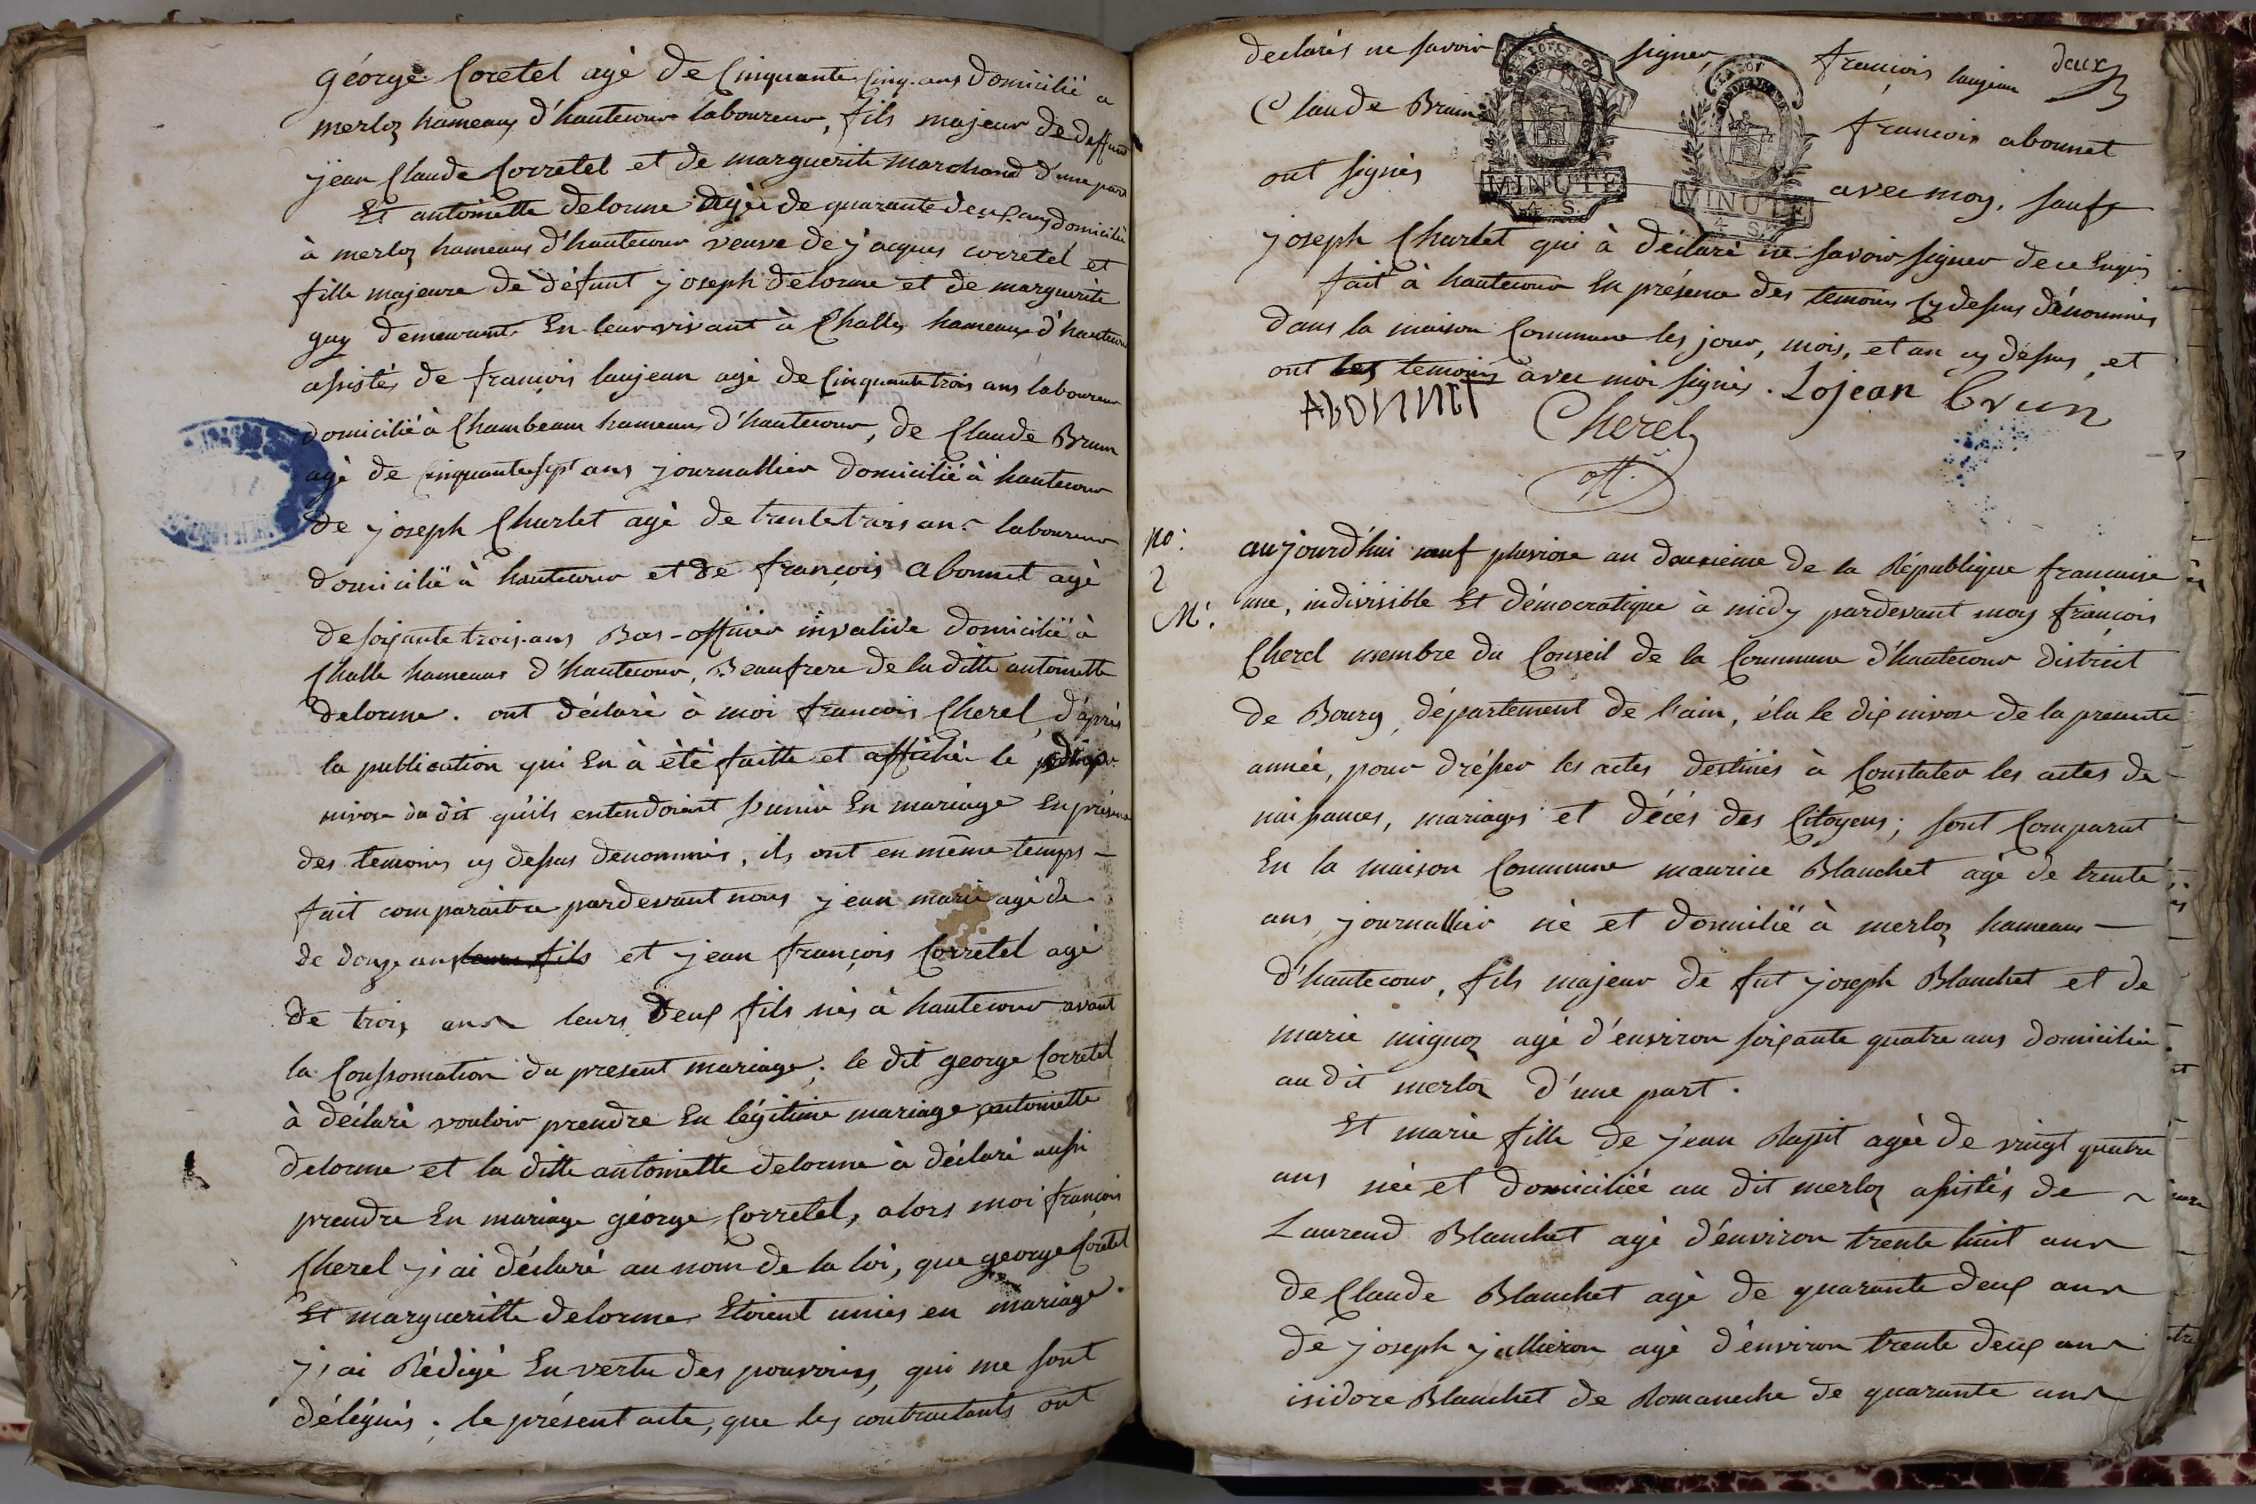 géorge Coretel agé de Cinquante Cinq ans domicilié a
merloz hameaux d'hautecour laboureur, fils majeur de deffunt
jean Claude Corretel et de marguerite marchand d'une part
Et antoinette delorme agée de quarante deux ans domiciliée
à merloz hameaux d'hautecour veuve de jacques corretel et
fille majeure de défunt joseph delorme et de marguerite
guy demeurant En leur vivant à Challes hameaux d'hautecour
assistés de françois laujean agé de Cinquante trois ans laboureur
domicilié à Chambeau hameaux d'hautecour, de Claude Brun
agé de Cinquante sept ans journallier domicilié à hautecour
de joseph Charlet agé de trente trois ans laboureur
domicilié à hautecour et de françois Abonnet agé
de soixante trois ans Bas-officier invalide domicilié à
Challe hameaux d'hautecour, Beaufrere de la ditte antoinette
delorme. ont déclaré à moi françois Cherel, d'après
la publication qui En à été faitte et affiché le
nivose du dit qu'ils entendoient s'unir En mariage En présence
des temoins cy dessus denommés, ils ont en même temps
fait comparaitre pardevant nous jean marie agé de
de douze ans leurs fils et jean françois Corretel agé
de trois ans leurs deux fils nés à hautecour avant
la Consomation du present mariage; le dit george Corretel
à déclaré vouloir prendre En légitime mariage antoinette
delorme et la ditte antoinette delorme à déclaré aussi
prendre En mariage géorge Corretel, alors moi françois
Cherel j'ai déclaré au nom de la loi, que george Coretel
Et margueritte delorme Etoient unies en mariage.
j'ai Rédigé En vertu des pouvoirs, qui me sont
délégués; le présent acte, que les contractants ont
deux
declarés ne savoir signer, françois laujean
Claude Brun françois abonnet
ont signés avec moy, sauf
joseph Charlet qui à déclaré ne savoir signer de ce Enquis
MINUTE
4 S.
MINUTE
4 S.
fait à hautecour En présence des temoins Cy dessus dénommés
dans la maison Commune les jour, mois, et an cy dessus, et
ont les temoins avec moi signés. Lojean Brun
Abonnet Cherel
off.
no:
2
M:
aujourd'hui neuf pluviose an deuxieme de la République francaise
une, indivisible Et démocratique à midy pardevant moy françois
Cherel membre du Conseil de la Commune d'hautecour district
de Bourg, département de l'ain, élu le dix nivose de la presente
année, pour drésser les actes destinés à Constater les actes de
naissances, mariages et décés des Citoyens; sont Comparut
En la maison Commune maurice Blanchet agé de trente
ans journallier né et domicilié à merloz hameaux
d'hautecour, fils majeur de fut joseph Blanchet et de
marie mignoz agé d'environ soixante quatre ans domiciliée
au dit merloz d'une part.
Et marie fille de jean Rapit agée de vingt quatre
ans née et domiciliée au dit merloz assistés de
Laurend Blanchet agé d'environ trente huit ans
de Claude Blanchet agé de quarante deux ans
de joseph jullieron agé d'environ trente deux ans
isidore Blanchet de Romaneche de quarante ans